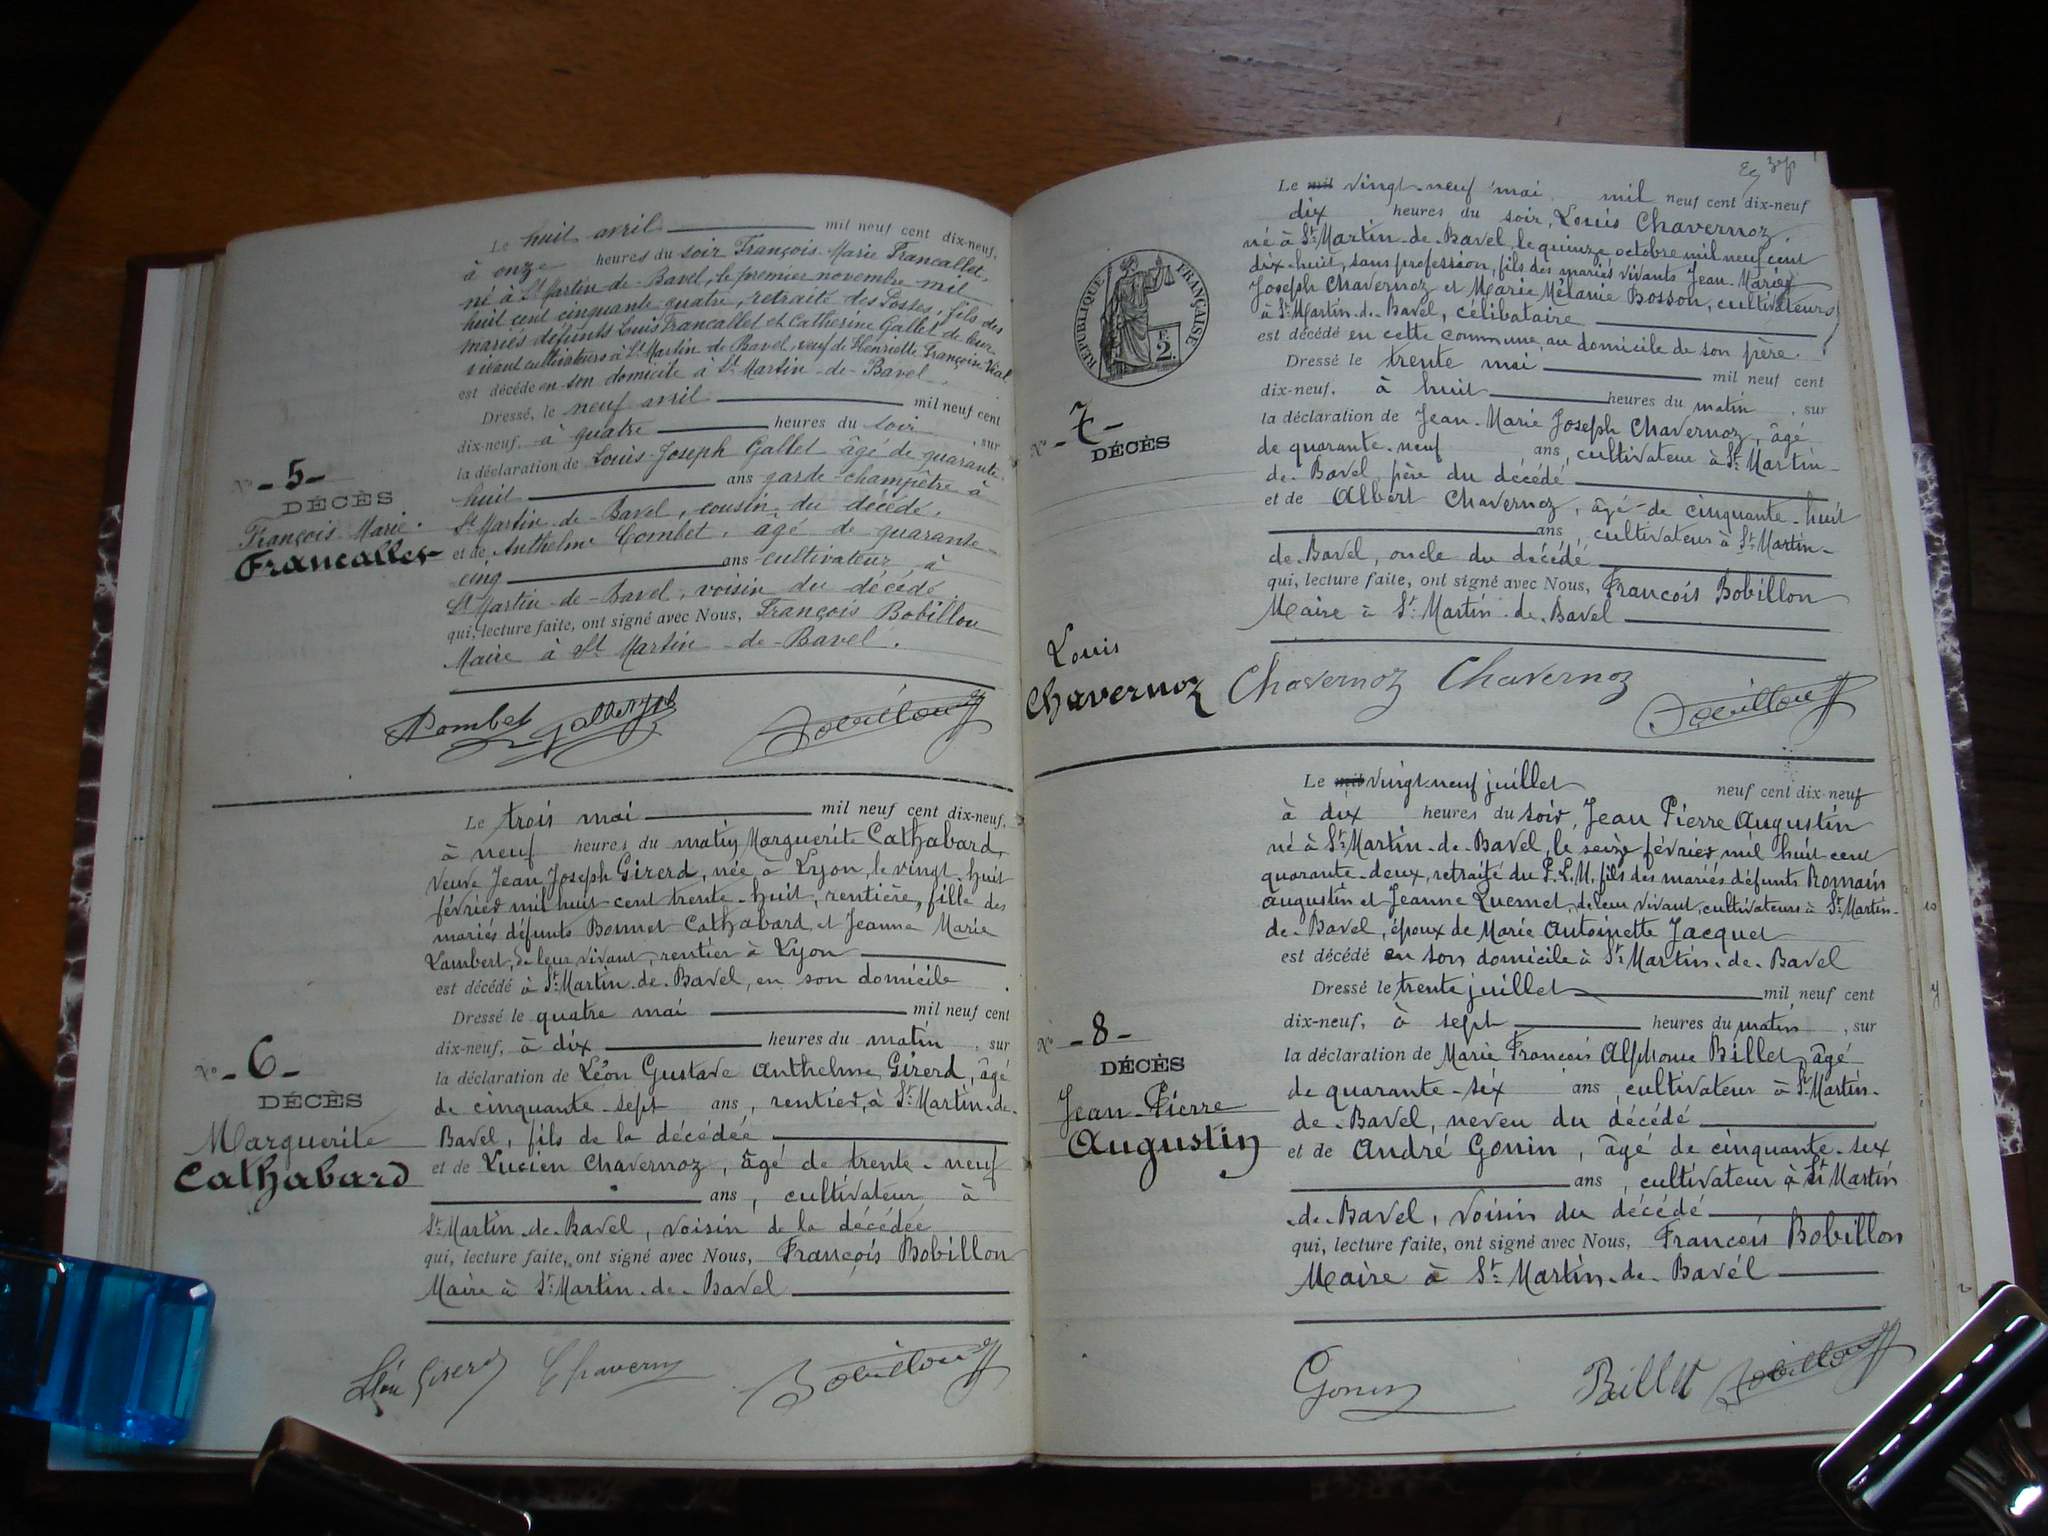 Le huit avril mil neuf cent dix-neuf,
à onze heures du soir François-Marie Francallet,
né à St Martin-de-Bavel, le premier novembre mil
huit cent cinquante-quatre, retraité des Postes, fils des
mariés défunts Louis Francallet et Catherine Gallet de leur
vivant cultivateurs à St Martin de Bavel, veuf de Henriette Françoise Vial
est décédé en son domicile à St Martin-de-Bavel.
Dressé, le neuf avril mil neuf cent
dix-neuf, à quatre heures du soir, sur
la déclaration de Louis-Joseph Gallet âgé de quarante-
huit ans garde-champêtre à
St Martin-de-Bavel, cousin du décédé,
et de Anthelme Combet, âgé de quarante-
cinq ans cultivateur à
St Martin-de-Bavel, voisin du décédé,
qui, lecture faite, ont signé avec Nous, François Bobillon
Maire à St Martin-de-Bavel.
No -5-
DÉCÈS
François Marie
Francallet
Combet Bobillon
Le trois mai mil neuf cent dix-neuf,
à neuf heures du matin Marguerite Cathabard,
Veuve Jean Joseph Girerd, née à Lyon, le vingt-huit
février mil huit cent trente-huit, rentière, fille des
mariés défunts Cathabard et Jeanne Marie
Lambert, de leur vivant, rentier à Lyon
est décédé à St Martin-de-Bavel, en son domicile
Dressé le quatre mai mil neuf cent
dix-neuf, à dix heures du matin, sur
la déclaration de Léon Gustave Anthelme Girerd, âgé
de cinquante-sept ans, rentier, à St Martin-de-
Bavel, fils de la décédée
et de Lucien Chavernoz, âgé de trente-neuf
ans, cultivateur à
St Martin-de-Bavel, voisin de la décédée
qui, lecture faite, ont signé avec Nous, François Bobillon
Maire à St Martin-de-Bavel
No -6-
DÉCÈS
Marguerite
Cathabard
Léon Girerd Bobillon
Le mil vingt-neuf mai mil neuf cent dix-neuf
dix heures du soir, Louis Chavernoz
né à St Martin-de-Bavel, le quinze octobre mil neuf cent
dix-huit, sans profession, fils des mariés vivants Jean-Marie
Joseph Chavernoz et Marie Mélanie Bosson, cultivateurs
à St Martin-de-Bavel, célibataire
est décédé en cette commune au domicile de son père.
Dressé le trente mai mil neuf cent
dix-neuf, à huit heures du matin, sur
la déclaration de Jean-Marie Joseph Chavernoz, âgé
de quarante-neuf ans, cultivateur à St Martin-
de-Bavel, père du décédé
et de Albert Chavernoz, âgé de cinquante-huit
ans, cultivateur à St Martin-
de-Bavel, oncle du décédé
qui, lecture faite, ont signé avec Nous, François Bobillon
Maire à St Martin-de-Bavel
RÉPUBLIQUE FRANÇAISE
F. 2.
No -7-
DÉCÈS
Louis
Chavernoz
Chavernoz Chavernoz Bobillon
Le mil vingt-neuf juillet neuf cent dix-neuf
à dix heures du soir, Jean Pierre Augustin
né à St Martin-de-Bavel, le seize février mil huit cent
quarante-deux, retraité du P.L.M. fils des mariés défunts Romain
Augustin et Jeanne Quemet, de leur vivant, cultivateurs à St Martin-
de-Bavel, époux de Marie Antoinette Jacquet
est décédé en son domicile à St Martin-de-Bavel
Dressé le trente juillet mil neuf cent
dix-neuf, à sept heures du matin, sur
la déclaration de Marie François Alphonse Billet, âgé
de quarante-six ans, cultivateur à St Martin-
de-Bavel, neveu du décédé
et de André Gonin, âgé de cinquante-six
ans, cultivateur à St Martin
-de-Bavel, voisin du décédé
qui, lecture faite, ont signé avec Nous, François Bobillon
Maire à St Martin-de-Bavel
No -8-
DÉCÈS
Jean-Pierre
Augustin
Gonin Billet Bobillon